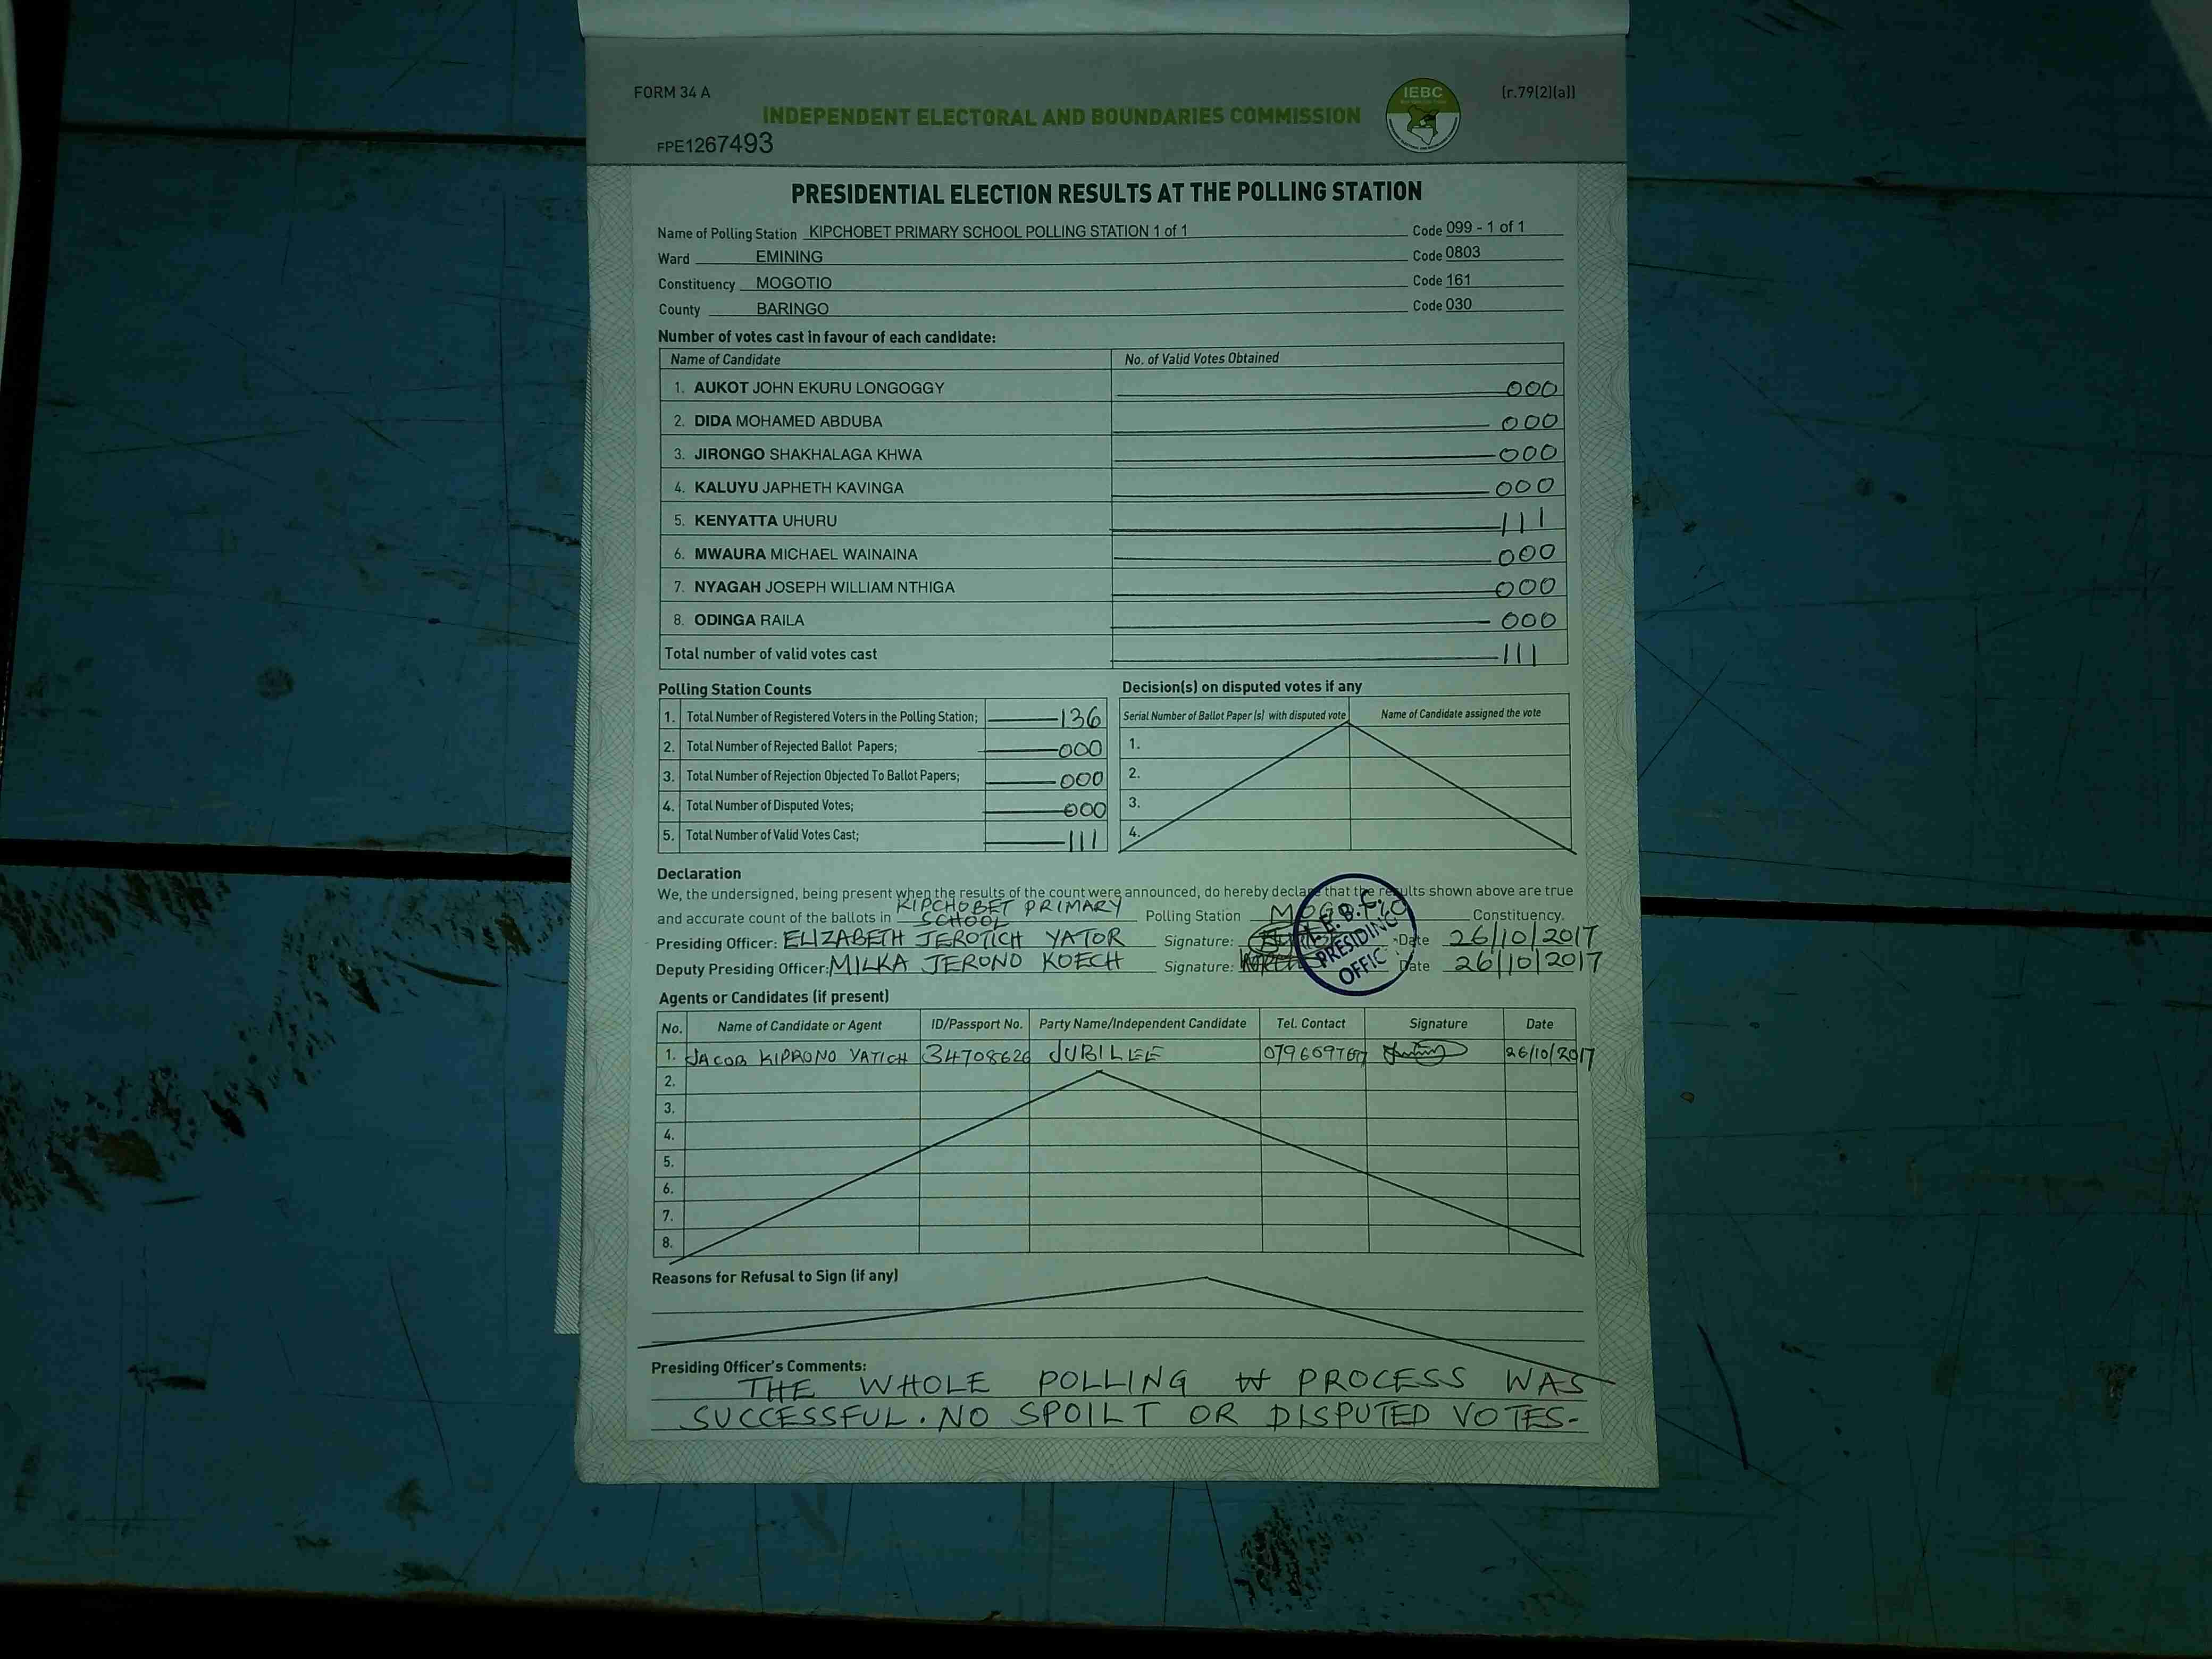 FORM 34 A
[r.79(2)(a)]
INDEPENDENT ELECTORAL AND BOUNDARIES COMMISSION
IEBC
FPE1267493
PRESIDENTIAL ELECTION RESULTS AT THE POLLING STATION
Name of Polling Station KIPCHOBET PRIMARY SCHOOL POLLING STATION 1 of 1 Code 099 - 1 of 1
Ward EMINING Code 0803
Constituency MOGOTIO Code 161
County BARINGO Code 030
Number of votes cast in favour of each candidate:
Name of Candidate No. of Valid Votes Obtained
1. AUKOT JOHN EKURU LONGOGGY 000
2. DIDA MOHAMED ABDUBA 000
3. JIRONGO SHAKHALAGA KHWA 000
4. KALUYU JAPHETH KAVINGA 000
5. KENYATTA UHURU 111
6. MWAURA MICHAEL WAINAINA 000
7. NYAGAH JOSEPH WILLIAM NTHIGA 000
8. ODINGA RAILA 000
Total number of valid votes cast 111
Polling Station Counts
1. Total Number of Registered Voters in the Polling Station; 136
2. Total Number of Rejected Ballot Papers; 000
3. Total Number of Rejection Objected To Ballot Papers; 000
4. Total Number of Disputed Votes; 000
5. Total Number of Valid Votes Cast; 111
Decision(s) on disputed votes if any
Serial Number of Ballot Paper (s) with disputed vote Name of Candidate assigned the vote
1.
2.
3.
4.
Declaration
We, the undersigned, being present when the results of the count were announced, do hereby declare that the results shown above are true
and accurate count of the ballots in KIPCHOBET PRIMARY SCHOOL Polling Station MOGOTIO Constituency.
Presiding Officer: ELIZABETH JEROTICH YATOR Signature: Date 26/10/2017
Deputy Presiding Officer: MILKA JERONO KOECH Signature: Date 26/10/2017
I.E.B.C.
PRESIDING
OFFIC
Agents or Candidates (if present)
No. Name of Candidate or Agent ID/Passport No. Party Name/Independent Candidate Tel. Contact Signature Date
1. JACOB KIPRONO YATICH 34708626 JUBILEE 26/10/2017
2.
3.
4.
5.
6.
7.
8.
Reasons for Refusal to Sign (if any)
Presiding Officer's Comments:
THE WHOLE POLLING PROCESS WAS
SUCCESSFUL. NO SPOILT OR DISPUTED VOTES-